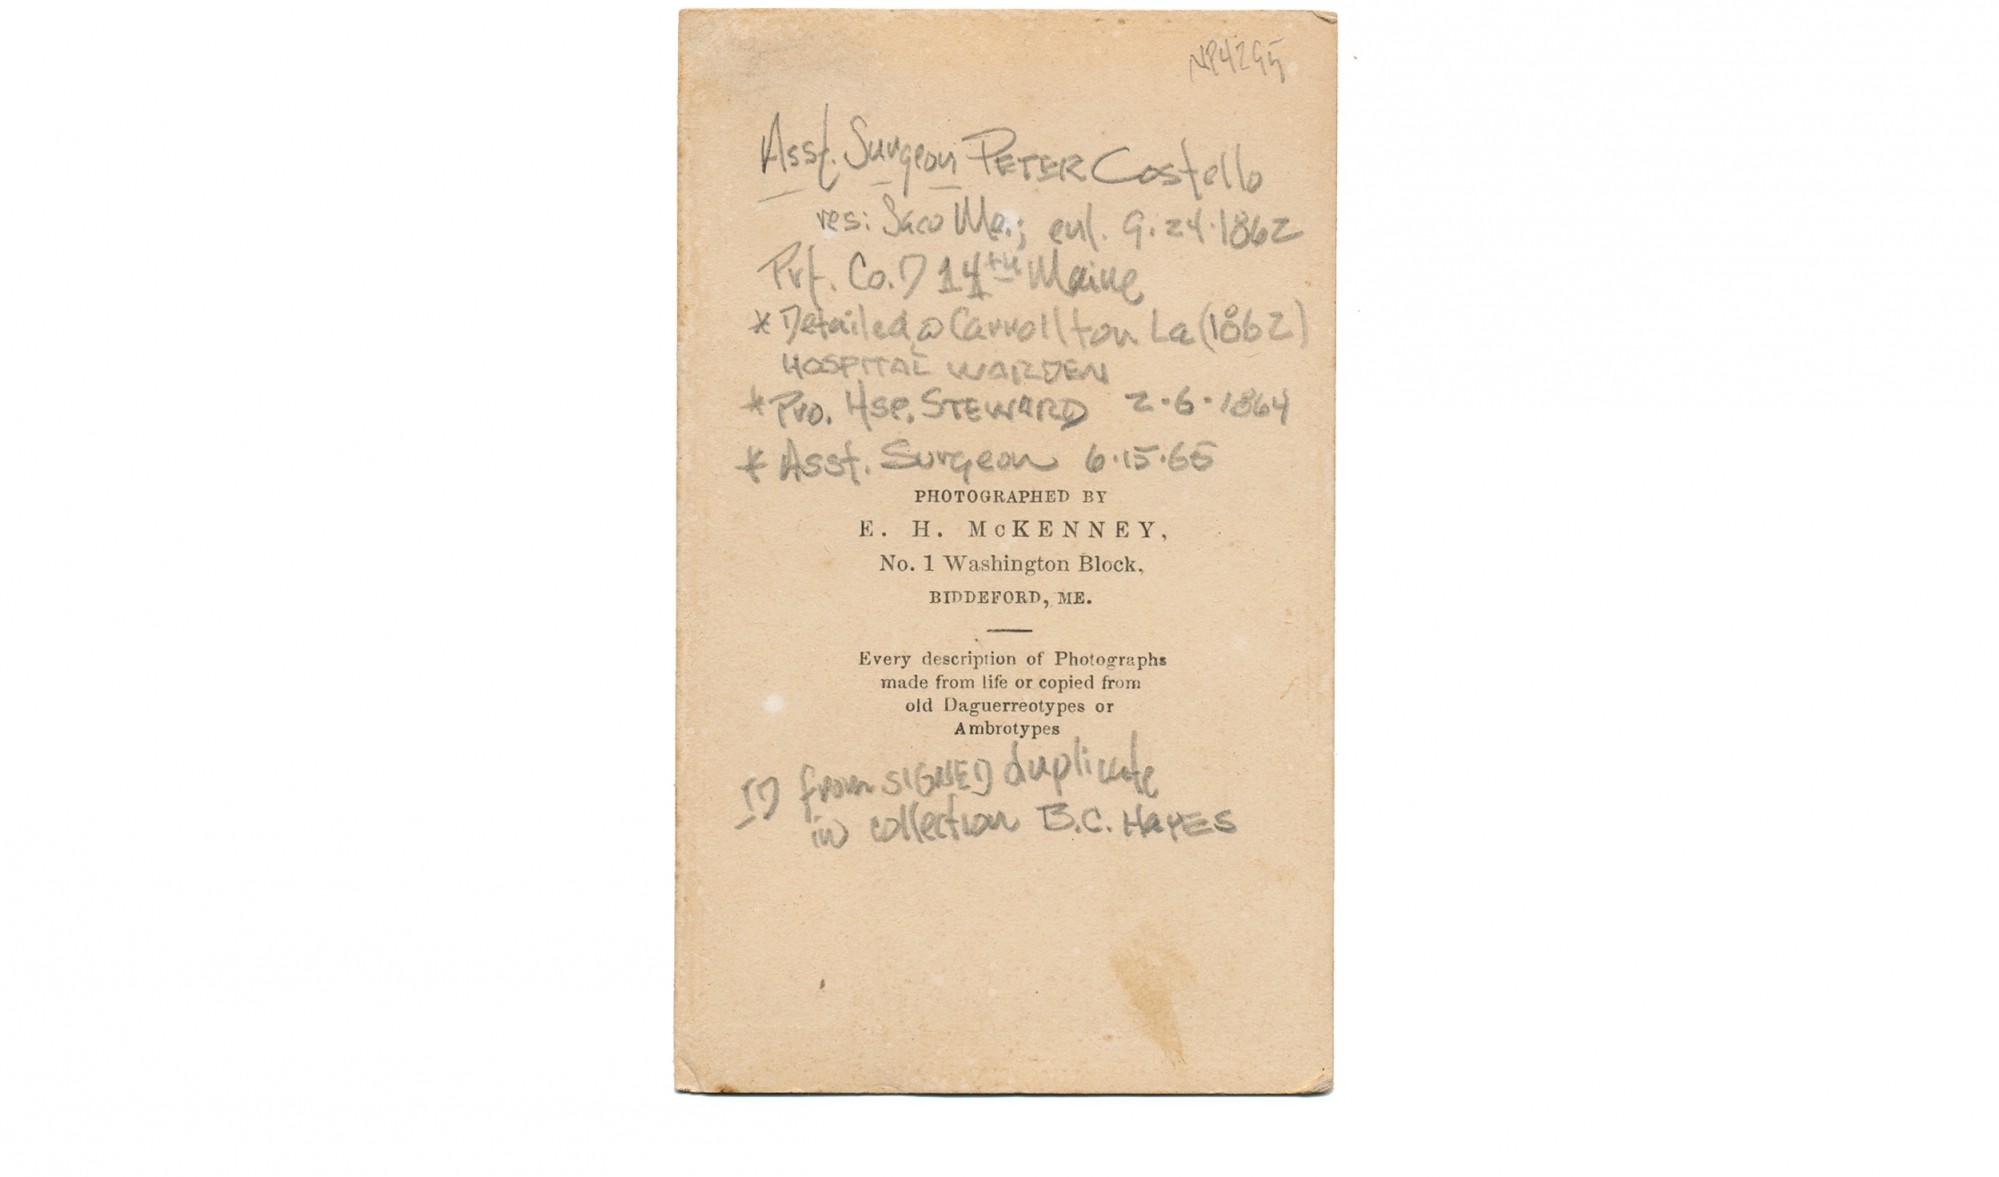 Asst. Surgeon PETER Costello
res: Saco Me.; enl. 9.24.1862
Pvt. Co. D 14th Maine
* Detailed @ Carrollton La (1862)
HOSPITAL WARDEN
* Pro. Hsp. STEWARD 2.6.1864
* Asst. Surgeon 6.15.65
PHOTOGRAPHED BY
E. H. McKENNEY,
No. 1 Washington Block,
BIDDEFORD, ME.
Every description of Photographs
made from life or copied from
old Daguerreotypes or
Ambrotypes
ID from SIGNED duplicate
in collection B.C. HAYES